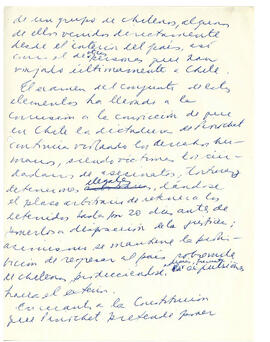 de un grupo de chilenos, algunos
de ellos venidos directamente
desde el interior del país, así
con el de personas que han
viajado últimamente a Chile.
El examen del conjunto de estos
elementos ha llevado a la
comisión a la convicción de que
en Chile la dictadura de Pinochet
continúa violando los derechos hu-
manos, siendo víctimas los ciu-
dadanos de asesinatos, torturas,
detenciones ilegales, dándose
el plazo arbitrario de retener a los
detenidos hasta por 20 días antes de
ponerlos a disposición de la justicia;
asimismo se mantiene la prohi-
bición de regresar al país
de chilenos expulsiones
hacia el exterior.
En cuanto a la Constitución
que Pinochet pretende poner